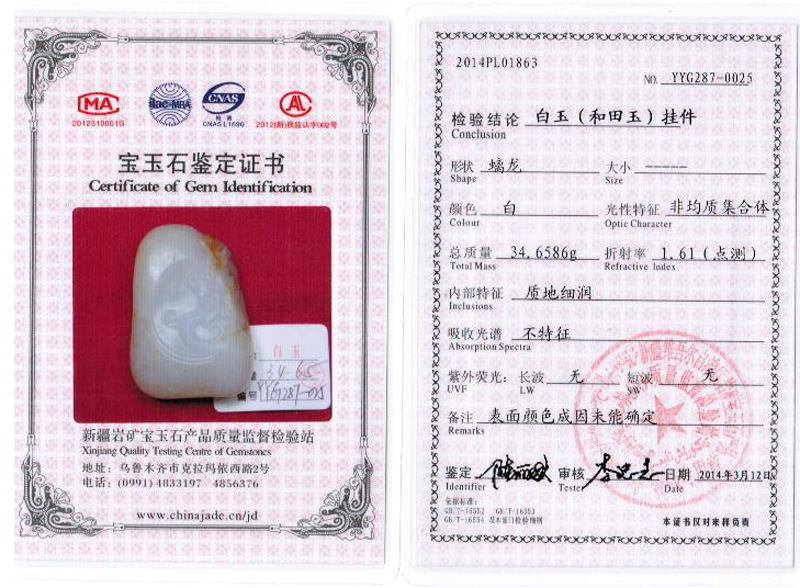 MA
2012310001G
ilac-MRA
CNAS
检测
CNAS L1696
AL
2012(新)质监认字002号
宝玉石鉴定证书
Certificate of Gem Identification
白玉
34.65
编号 YYG287-025
新疆岩矿宝玉石产品质量监督检验站
Xinjiang Quality Testing Centre of Gemstones
地址：乌鲁木齐市克拉玛依西路2号
电话：(0991) 4833197 4856376
www.chinajade.cn/jd
2014PL01863
NO. YYG287-0025
检验结论 白玉(和田玉)挂件
Conclusion
形状 螭龙 大小 -----
Shape Size
颜色 白 光性特征 非均质集合体
Colour Optic Character
总质量 34.6586g 折射率 1.61(点测)
Total Mass Refractive Index
内部特征 质地细润
Inclusions
吸收光谱 不特征
Absorption Spectra
紫外荧光：长波 无 短波 无
UVF LW SW
备注 表面颜色成因未能确定
Remarks
鉴定 审核 日期 2014年3月12日
Identifier Tester Date
依据标准：
GB/T-16552 GB/T-16553
GB/T-16554 及本部门检验细则
本证书仅对来样负责